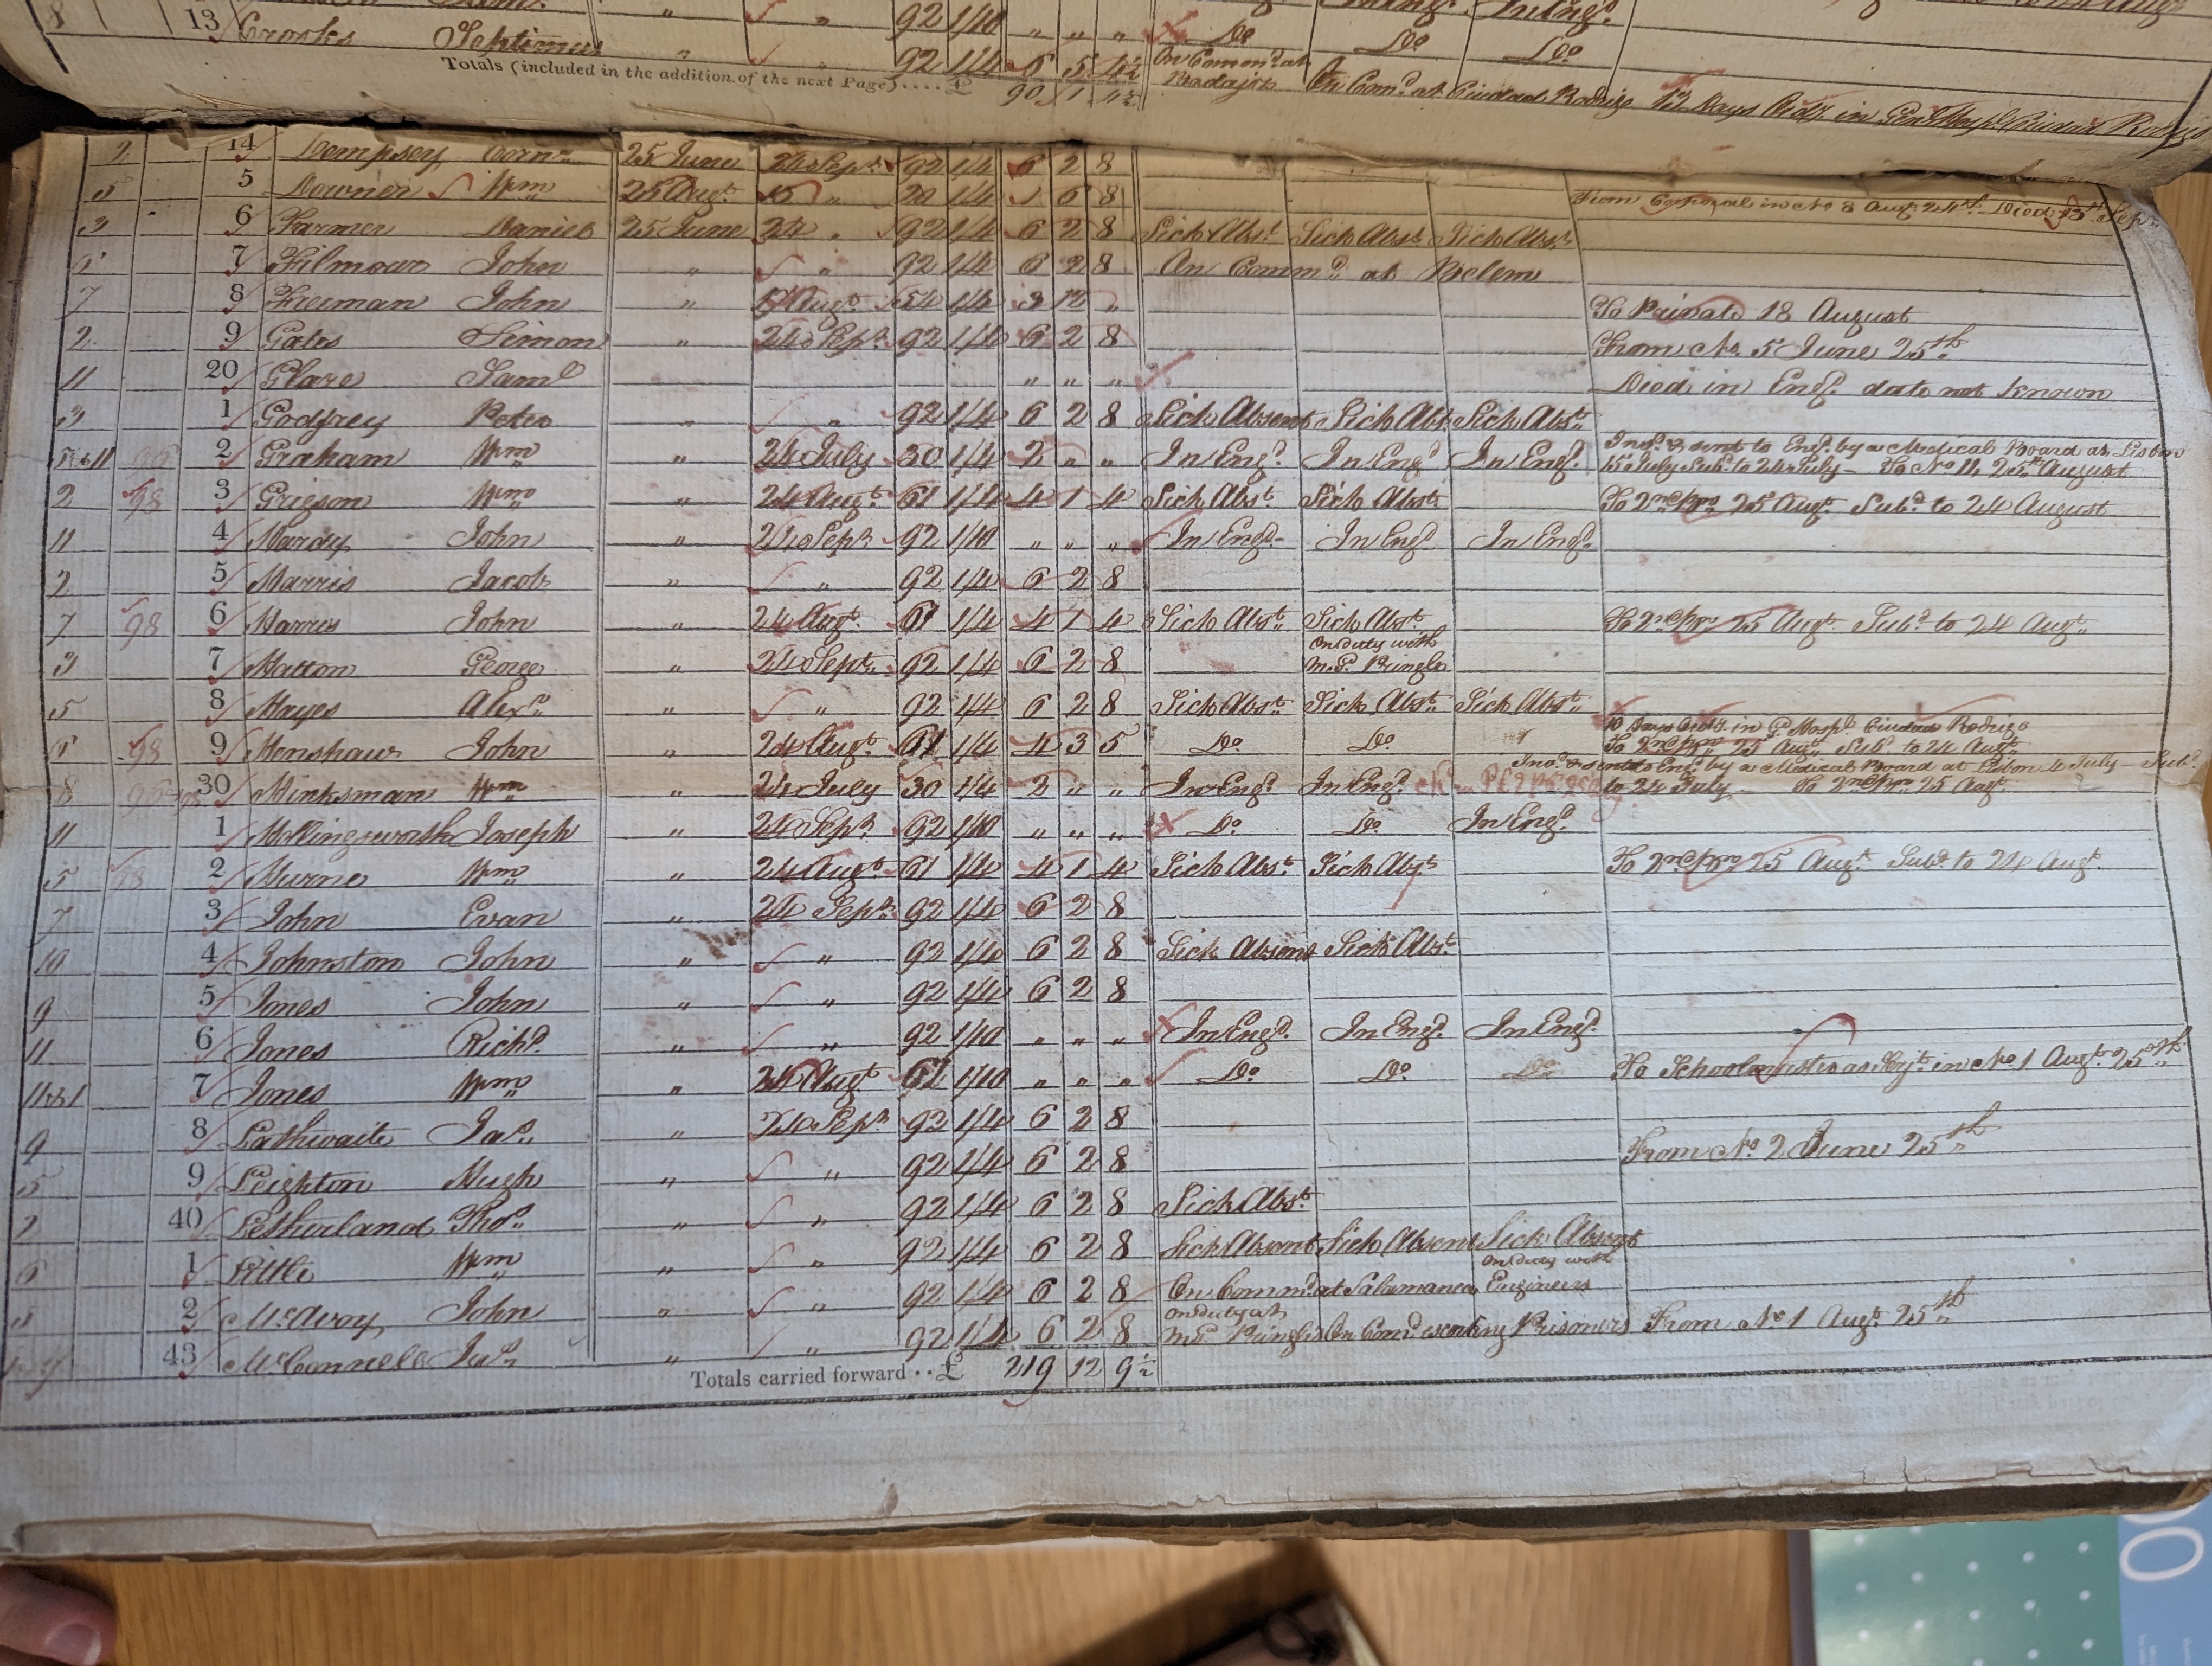 8 13 Crooks Septimus " " 92 1/4 6 5 4½ On Comm.d at Badajos On Com.d at Ciudad Rodrigo 13 Days Ord.y in Gen.l Hosp.l Ciudad Rodrigo
92 1/10 " " " Do Do Do
Totals (included in the addition of the next Page).... £ 90 1 4½
2 14 Dempsey Corn.s 25 June 24 Sept. 92 1/4 6 2 8
5 5 Downer Wm 25 Augt. 13 " 20 1/4 1 6 8 From Corporal in No 8 Aug. 24th. Died 13th Sept.
3 6 Farmer Daniel 25 June 24 " 92 1/4 6 2 8 Sick Abst. Sick Abst. Sick Abst.
6 7 Filmour John " " 92 1/4 6 2 8 On Comm.d at Belem
7 8 Freeman John " 17 Augt. 54 1/4 3 12 " To Private 18 August
2 9 Gates Simon " 24 Sept. 92 1/4 6 2 8 From No. 5 June 25th
11 20 Glaze Saml " " " Died in Engd. date not known
3 1 Godfrey Peter " " 92 1/4 6 2 8 Sick Absent Sick Abst. Sick Abst.
11 2 Graham Wm " 24 July 30 1/4 2 " " In Engd. In Engd In Engd. Invd. & sent to Engd. by a Medical Board at Lisbon
15 July Subd. to 24 July – To No 11, 25th August
2 98 3 Grieson Wm " 24 Augt. 61 1/4 4 1 4 Sick Abst. Sick Abst. To 2nd 25 Augt. Subd. to 24 August
11 4 Hardy John " 24 Sept. 92 1/10 " " " In Engd. In Engd In Engd.
2 5 Harris Jacob " " 92 1/4 6 2 8
7 98 6 Harris John " 24 Augt. 61 1/4 4 1 4 Sick Abst. Sick Abst. To 2nd 25 Augt. Subd. to 24 Augt.
3 7 Hatton George " 24 Sept. 92 1/4 6 2 8 On duty with M.G. Pringle
5 8 Hayes Alexr. " " 92 1/4 6 2 8 Sick Abst. Sick Abst. Sick Abst.
10 Days Ord.y in G. Hospl. Ciudad Rodrigo
6 98 9 Henshaw John " 24 Augt. 61 1/4 4 3 5 Do Do To 2nd 25 Augt. Subd. to 24 Augt.
8 96 30 Hinksman Wm " 24 July 30 1/4 2 " " In Engd. In Engd. Invd. & sent to Engd. by a Medical Board at Lisbon 4 July – Subd.
to 24 July To 2nd 25 Augt.
11 1 Hollingsworth Joseph " 24 Sept. 92 1/10 " " " Do Do In Engd.
5 98 2 Hurne Wm " 24 Augt. 61 1/4 4 1 4 Sick Abst. Sick Abst. To 2nd 25 Augt. Subd. to 24 Augt.
7 3 John Evan " 24 Sept. 92 1/4 6 2 8
10 4 Johnston John " " 92 1/4 6 2 8 Sick Absent Sick Abst.
9 5 Jones John " " 92 1/4 6 2 8
11 6 Jones Richd. " " 92 1/10 " " " In Engd. In Engd. In Engd.
11 & 1 7 Jones Wm " 24 Augt 61 1/10 " " " Do Do Do To Schoolmaster as Serjt. in No 1 Augt. 25th
9 8 Lathwaite Jas. " 24 Sept. 92 1/4 6 2 8
5 9 Leighton Hugh " " 92 1/4 6 2 8 From No 2 June 25th
2 40 Letherland Thos. " " 92 1/4 6 2 8 Sick Abst.
6 1 Little Wm " " 92 1/4 6 2 8 Sick Absent Sick Absent Sick Absent
2 McAvoy John " " 92 1/4 6 2 8 On Comm.d at Salamanca On duty with Engineers
43 McConnell Jas. " " 92 1/4 6 2 8 On duty at M.G. Pringle's On Comd. escorting Prisoners From No 1 Augt. 25th
Totals carried forward .. £ 219 12 9½
00